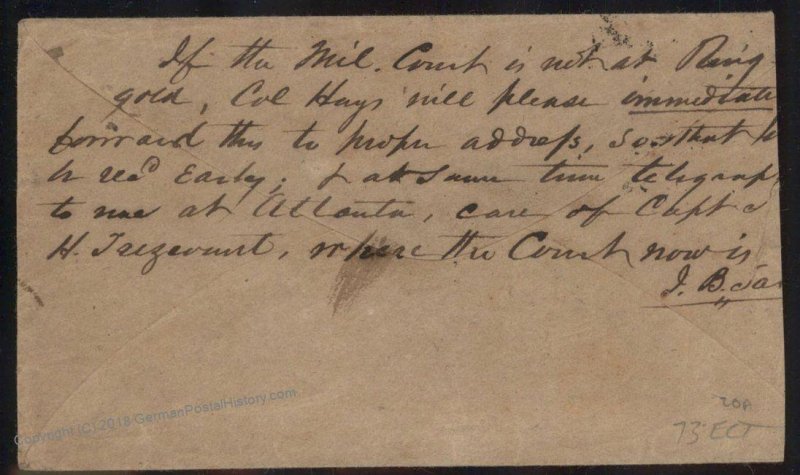 If the Mil. Court is not at Ring-
gold, Col Hays will please immediate
forward this to proper address, so that
be rec'd Early; & at same time telegraph
to me at Atlanta, care of Capt
H. Trezevant, where the Court now is
J. B.
20A
73 ECT
Copyright (C) 2018 GermanPostalHistory.com